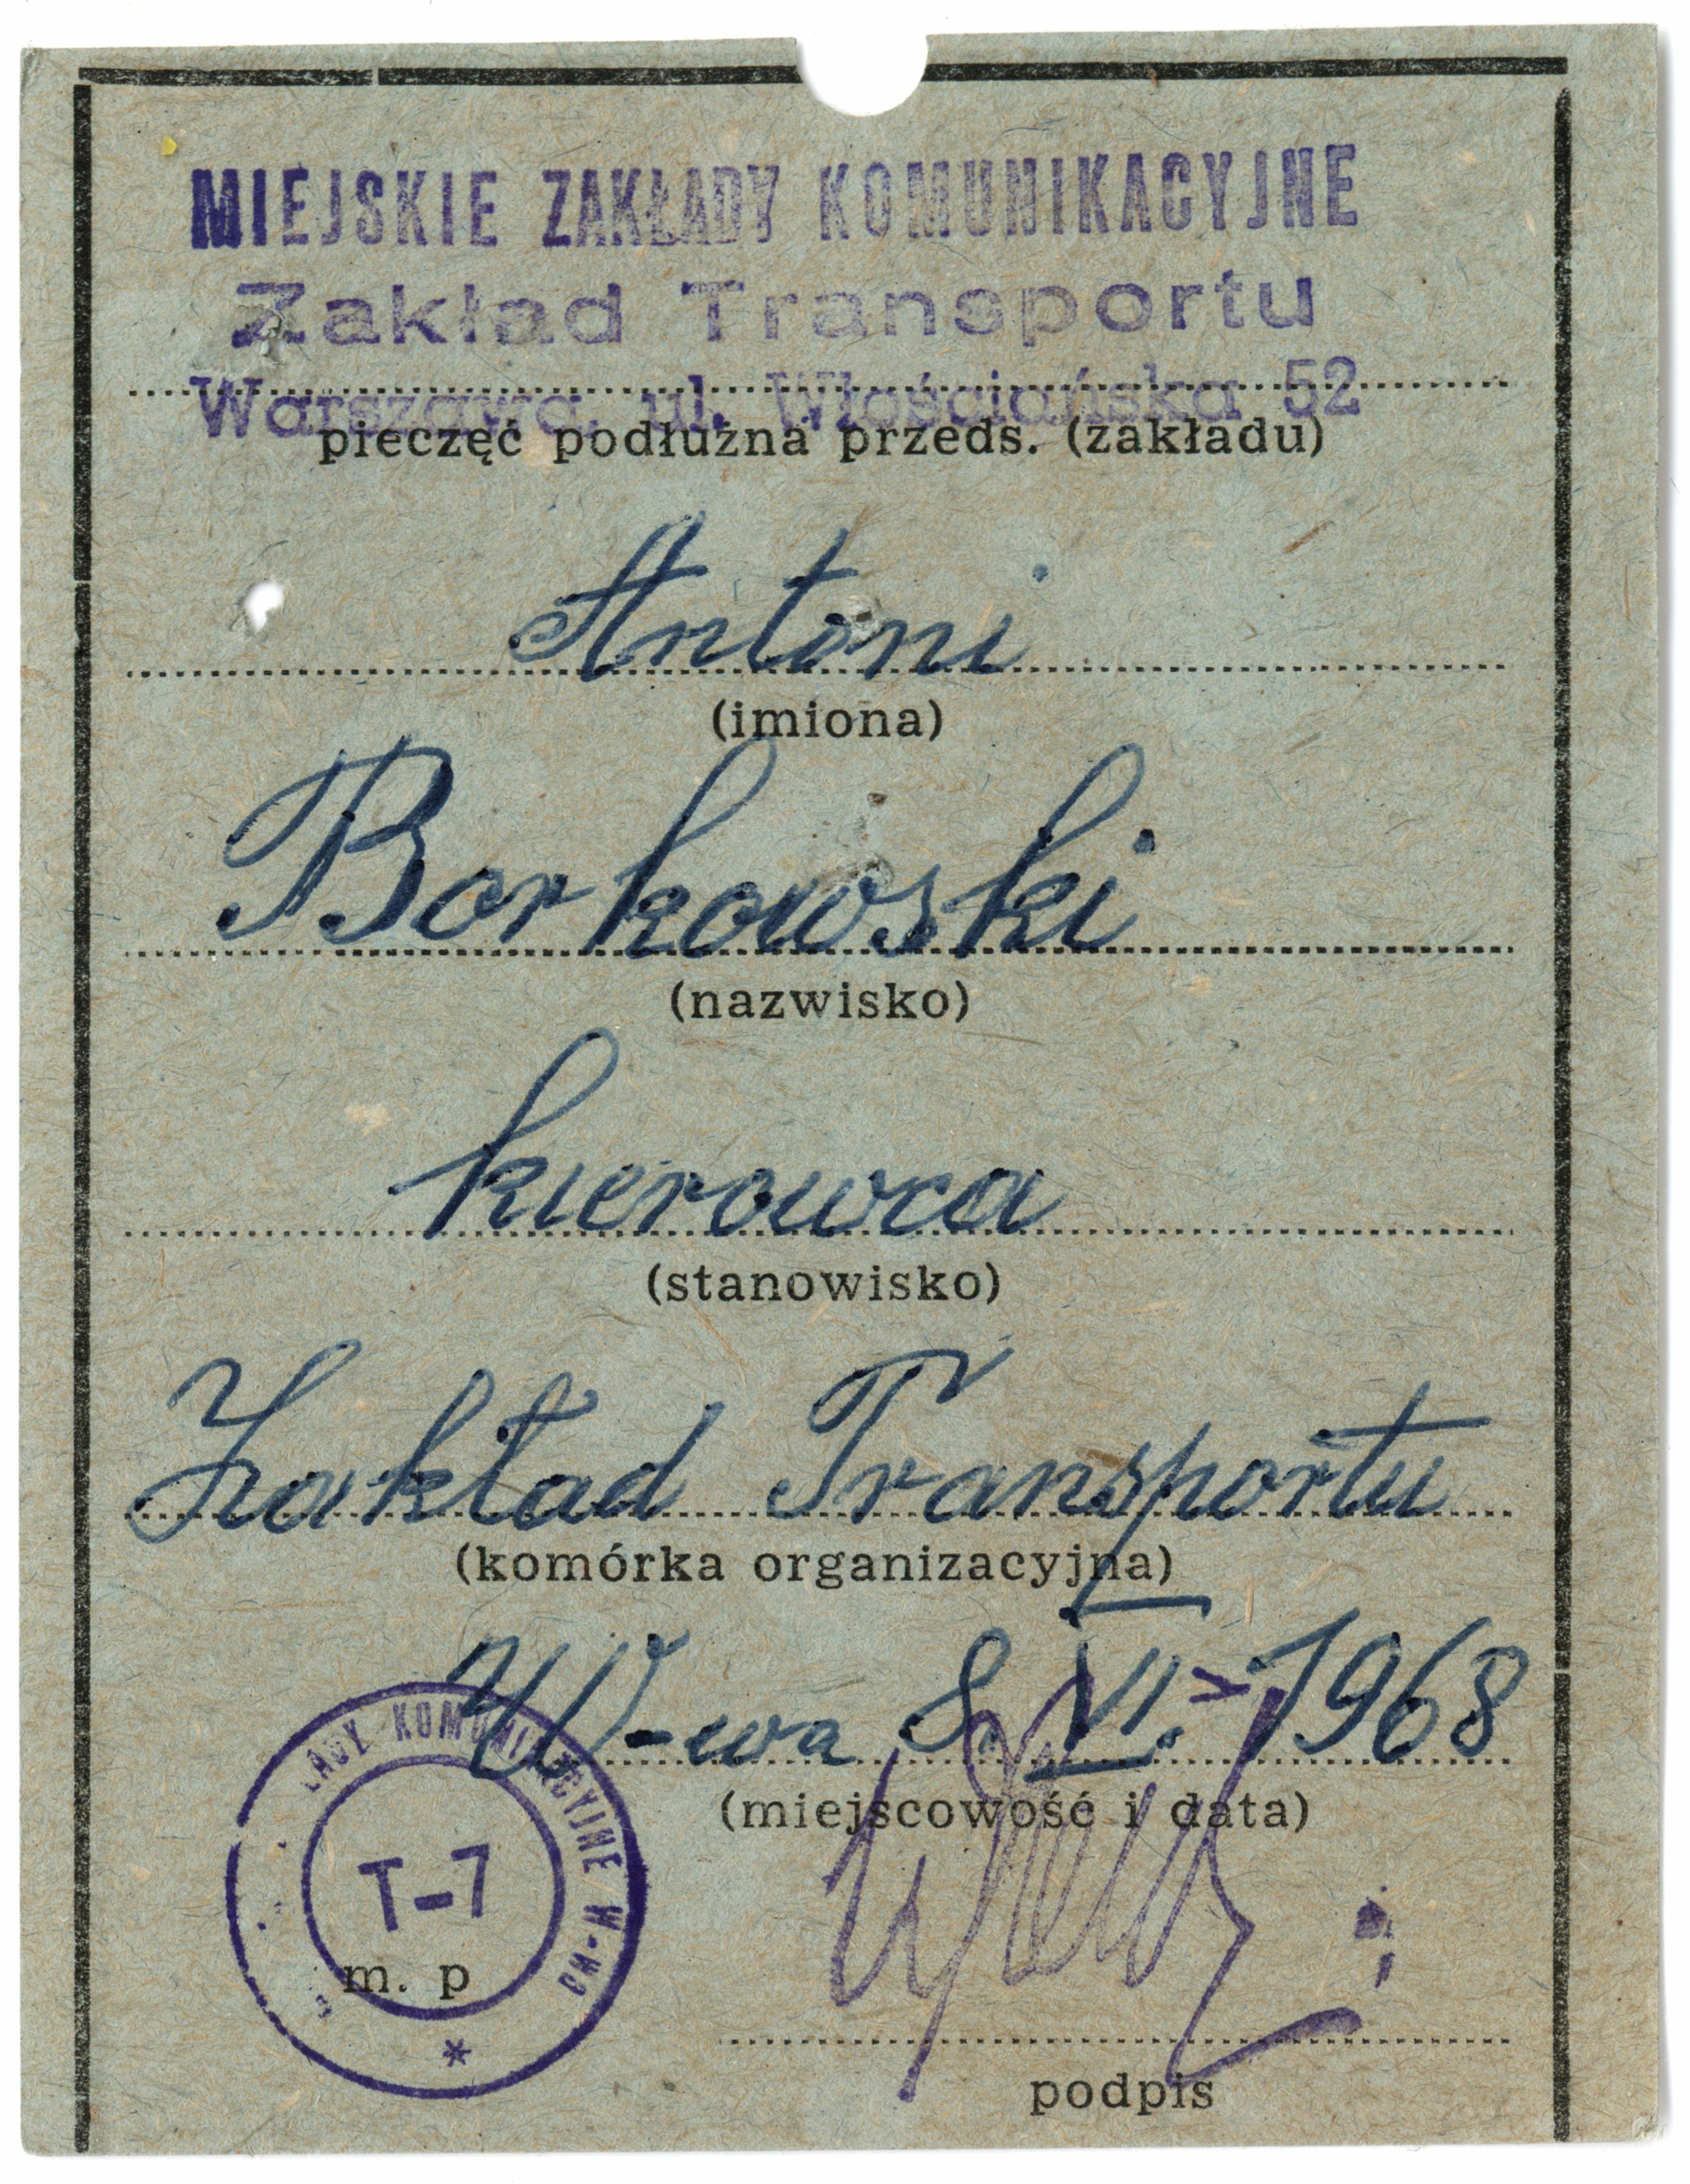 MIEJSKIE ZAKŁADY KOMUNIKACYJNE
Zakład Transportu
Warszawa, ul. Włościańska 52
pieczęć podłużna przeds. (zakładu)
Antoni
(imiona)
Borkowski
(nazwisko)
kierowca
(stanowisko)
Zakład Transportu
(komórka organizacyjna)
W-wa 8. VI. 1968
(miejscowość i data)
ŁADY KOMUNIKACYJNE W-wa
T-7
m. p
*
podpis